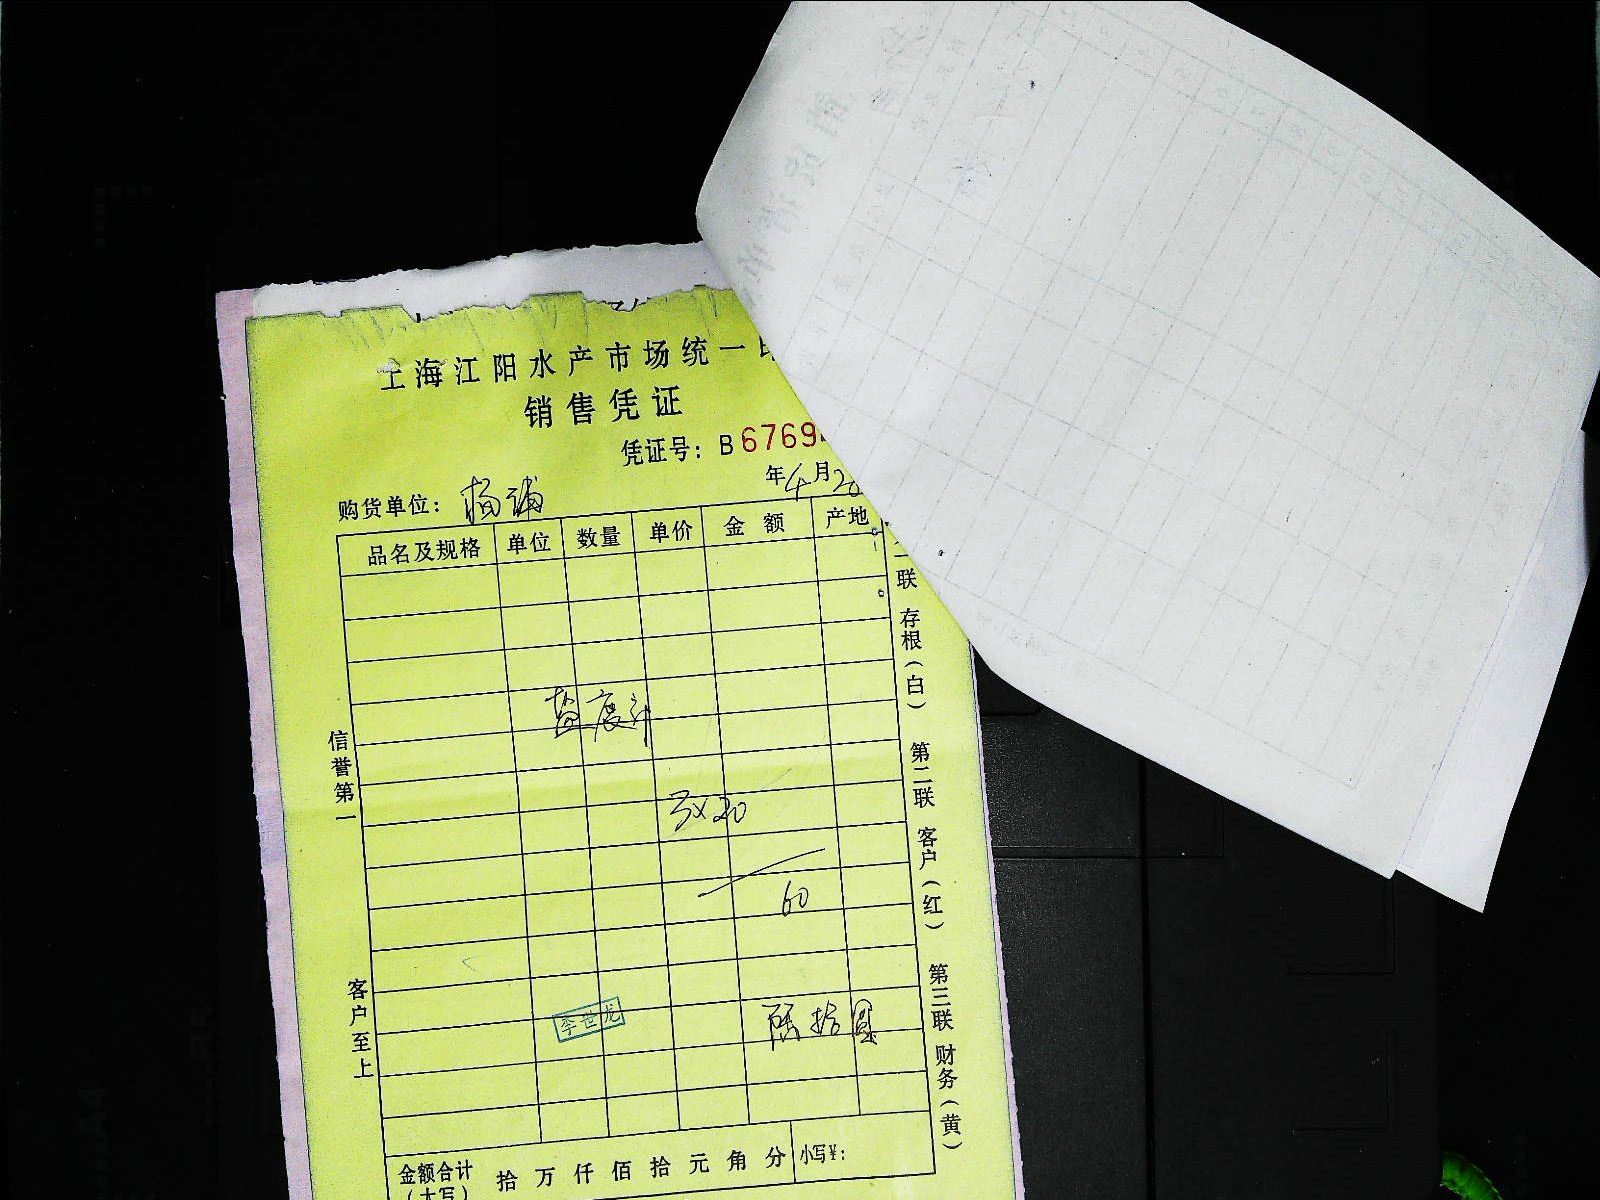 上海江阳水产市场统一
销售凭证
凭证号：B6769
年4月20
购货单位：杨浦
品名及规格 单位 数量 单价 金额 产地
3×20
60
李世龙
陆拾圆
金额合计（大写） 拾 万 仟 佰 拾 元 角 分 小写¥：
信誉第一
客户至上
联 存根（白） 第二联 客户（红） 第三联 财务（黄）